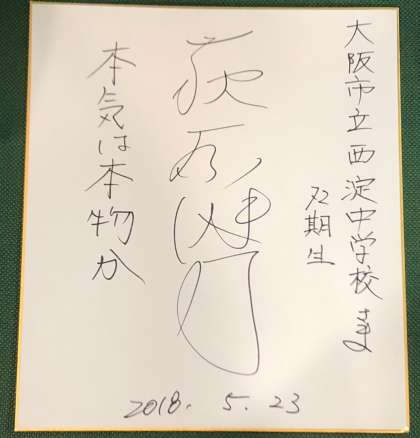 大阪市立西淀中学校さま
72期生
本気は本物か
2018. 5. 23